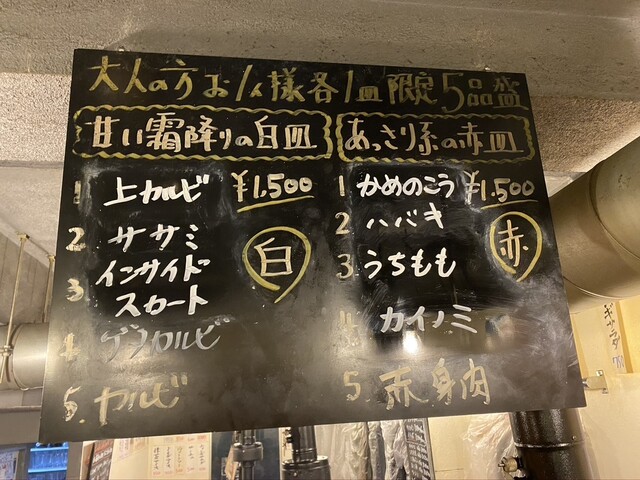 大人の方お1人様各1皿限定5品盛
甘い霜降りの白皿
1 上カルビ ¥1,500
2. ササミ
3. インサイド
スカート
4. ゲタカルビ
5. カルビ
白
あっさり系の赤皿
1 かめのこう ¥1,500
2 ハバキ
3. うちもも
4. カイノミ
5. 赤身肉
赤
ギサラダ